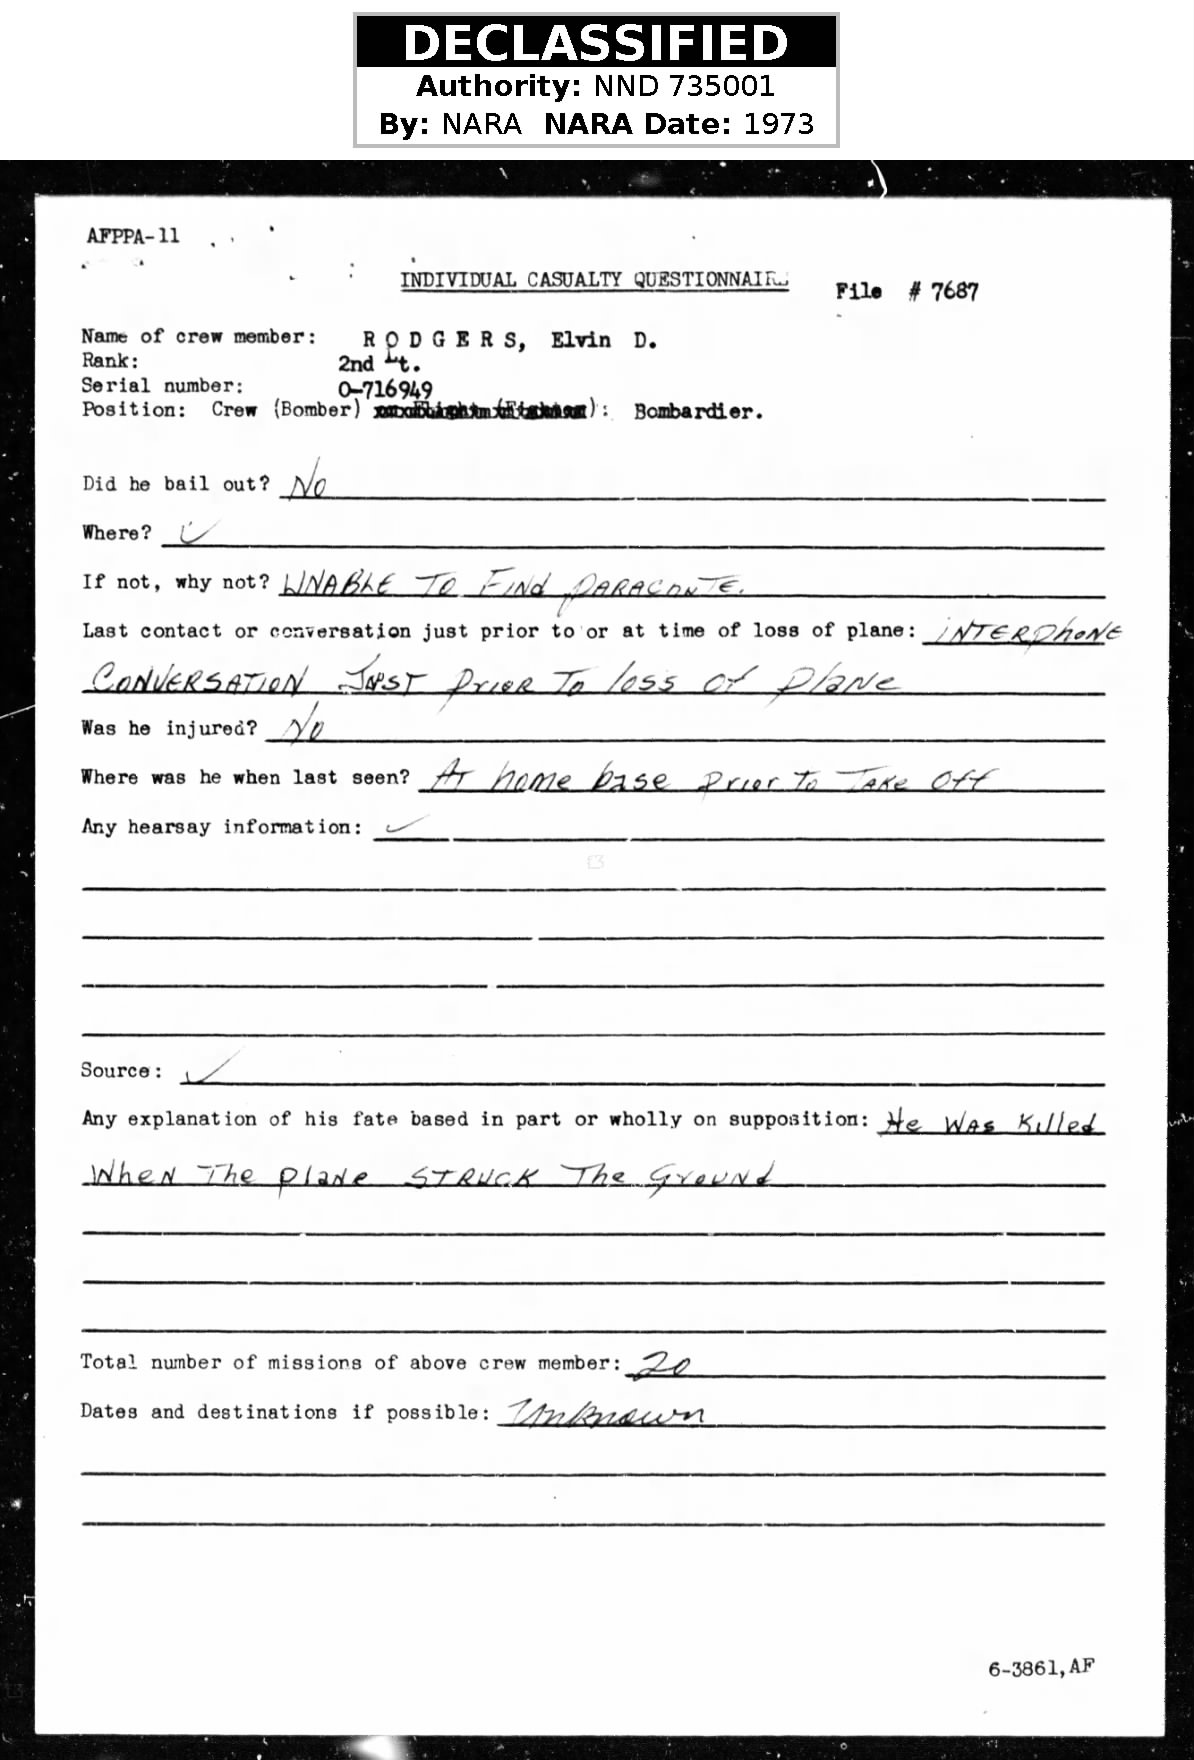 DECLASSIFIED
Authority: NND 735001
By: NARA NARA Date: 1973
AFPPA-11
INDIVIDUAL CASUALTY QUESTIONNAIRE
File # 7687
Name of crew member: R O D G E R S, Elvin D.
Rank: 2nd Lt.
Serial number: O-716949
Position: Crew (Bomber) ): Bombardier.
Did he bail out? No
Where? ✓
If not, why not? UNABLE TO FINd PARACUTE.
Last contact or conversation just prior to or at time of loss of plane: iNTERPhoNE
CONVERSATION JUST PrioR To loss of PlaNe
Was he injured? No
Where was he when last seen? AT home base Prior To TAKE Off
Any hearsay information: ✓
Source: ✓
Any explanation of his fate based in part or wholly on supposition: He WAs Killed
WheN The PlaNe STRUCK The GrouNd
Total number of missions of above crew member: 20
Dates and destinations if possible: Unknown
6-3861,AF